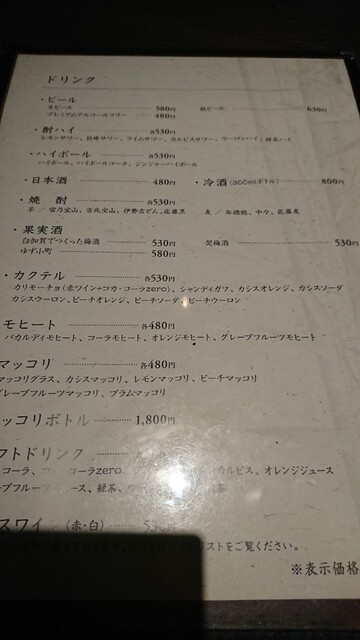 ドリンク
・ビール
生ビール 580円 瓶ビール 630円
プレミアムアルコールフリー 480円
・酎ハイ 各530円
レモンサワー、巨峰サワー、ライムサワー、カルピスサワー、ウーロンハイ、緑茶ハイ
・ハイボール 各530円
ハイボール、ハイボールコーラ、ジンジャーハイボール
・日本酒 480円 ・冷酒(300mlボトル) 800円
・焼酎 各530円
芋 / 富乃宝山、吉兆宝山、伊勢吉どん、佐藤黒 麦 / 中々、佐藤麦
・果実酒
白加賀でつくった梅酒 530円 梅酒 530円
ゆず小町 580円
・カクテル 各530円
カリモーチョ(赤ワイン+コカ・コーラzero)、シャンディガフ、カシスオレンジ、カシスソーダ
カシスウーロン、ピーチオレンジ、ピーチソーダ、ピーチウーロン
モヒート 各480円
バカルディモヒート、コーラモヒート、オレンジモヒート、グレープフルーツモヒート
マッコリ 各480円
マッコリグラス、カシスマッコリ、レモンマッコリ、ピーチマッコリ
グレープフルーツマッコリ、プラムマッコリ
ッコリボトル 1,800円
フトドリンク
コーラ、 コーラzero、 カルピス、オレンジジュース
ープフルーツ ース、緑茶、
スワイン (赤・白) 530円
リストをご覧ください。
※表示価格